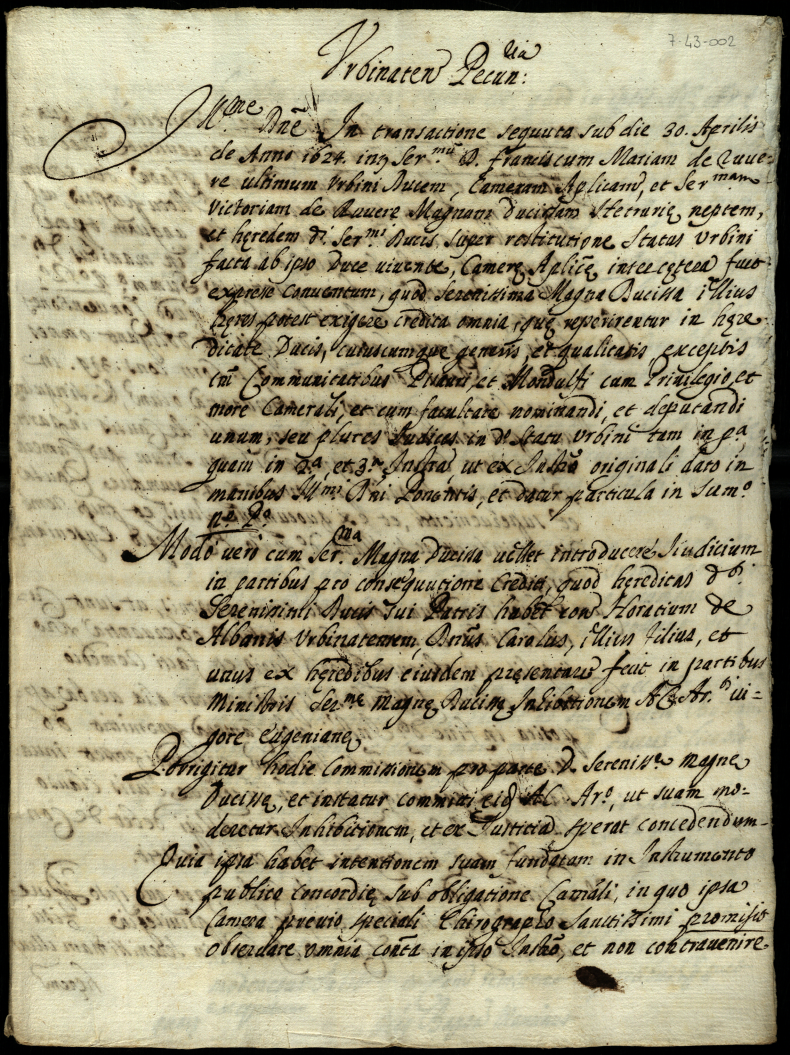 7-43-002
Urbinaten Pecun:ria
Ill.me Dnē In transactione sequuta sub die 30. Aprilis
de Anno 1624. inter Ser.mū D. Franciscum Mariam de Ruue-
re ultimum Urbini Ducem, Cameram Aplicam, et Ser.mam
Victoriam de Ruuere Magnam Ducissam Hetrurię neptem,
et hęredem d.i Ser.mi Ducis super restitutione Status Urbini
facta ab ipso Duce uiuente, Camerę Aplicę, inter cętera fuit
expresse conuentum, quod Serenissima Magna Ducissa illius
hęres potest exigere credita omnia, quę reperirentur in hęre-
ditate Ducis, cuiuscumque generis, et qualitatis, exceptis
tm̄ Communitatibus Pisauri, et Mondulfi cum Priuilegio, et
more Camerali, et cum facultate nominandi, et deputandi
unum, seu plures Iudices in d.o Statu Urbini tam in p.a
quam in 2.a, et 3.a Instra, ut ex Instro originali dato in
manibus Ill.mi Dni Ponentis, et datur particula in Sum.o
n.o P.o
Modo uero cum Ser.ma Magna Ducissa uellet introducere Iudicium
in partibus pro consequutione Crediti, quod hęreditas d.i
Serenissimi Ducis sui Patris habet con Horatium de
Albanis Urbinatensem, Dnus Carolus, illius filius, et
unus ex hęredibus eiusdem pręsentare fecit in partibus
Ministris Ser.mę Magnę Ducissę Inhibitionem AC. Ar.ti ui-
gore eugenianę
Porrigitur hodie Commissionem pro parte D. Sereniss.ę Magnę
Ducissę, et instatur committi eid AC. Ar.o, ut suam mo-
deretur Inhibitionem, et ex Iustitia sperat concedendum-
Quia ipsa habet intentionem suam fundatam in Instrumento
publico concordię sub obligatione Camāli, in quo ipsa
Camera pręuio speciali Chirographo Sanctissimi promisit
obseruare omnia conta in ipso Instro, et non contrauenire-